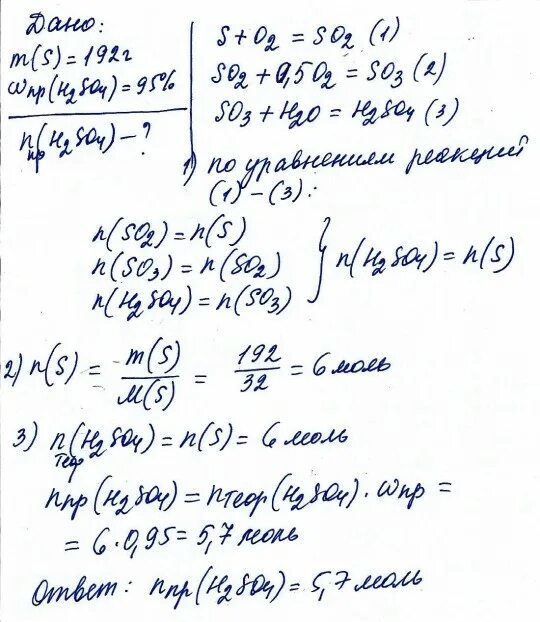 Дано:
m(S) = 192г
ωпр(H2SO4) = 95%
nпр(H2SO4) – ?
S + O2 = SO2 (1)
SO2 + 0,5O2 = SO3 (2)
SO3 + H2O = H2SO4 (3)
1) по уравнениям реакций
(1) – (3):
n(SO2) = n(S)
n(SO3) = n(SO2)
n(H2SO4) = n(SO3)
} n(H2SO4) = n(S)
2) n(S) = m(S)/M(S) = 192/32 = 6 моль
3) nтеор(H2SO4) = n(S) = 6 моль
nпр(H2SO4) = nтеор(H2SO4) · ωпр =
= 6 · 0,95 = 5,7 моль
Ответ: nпр(H2SO4) = 5,7 моль